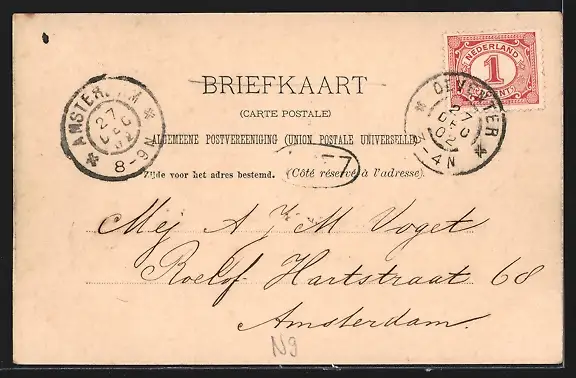 NEDERLAND
1
CENT
BRIEFKAART
(CARTE POSTALE)
ALGEMEENE POSTVEREENIGING (UNION POSTALE UNIVERSELLE)
Zijde voor het adres bestemd. (Côté réservé à l'adresse).
AMSTERDAM
27
DEC
02
8-9N
DEVENTER
27
DEC
02
-4N
Mej A J M Voget
Roelof Hartstraat 68
Amsterdam.
N9